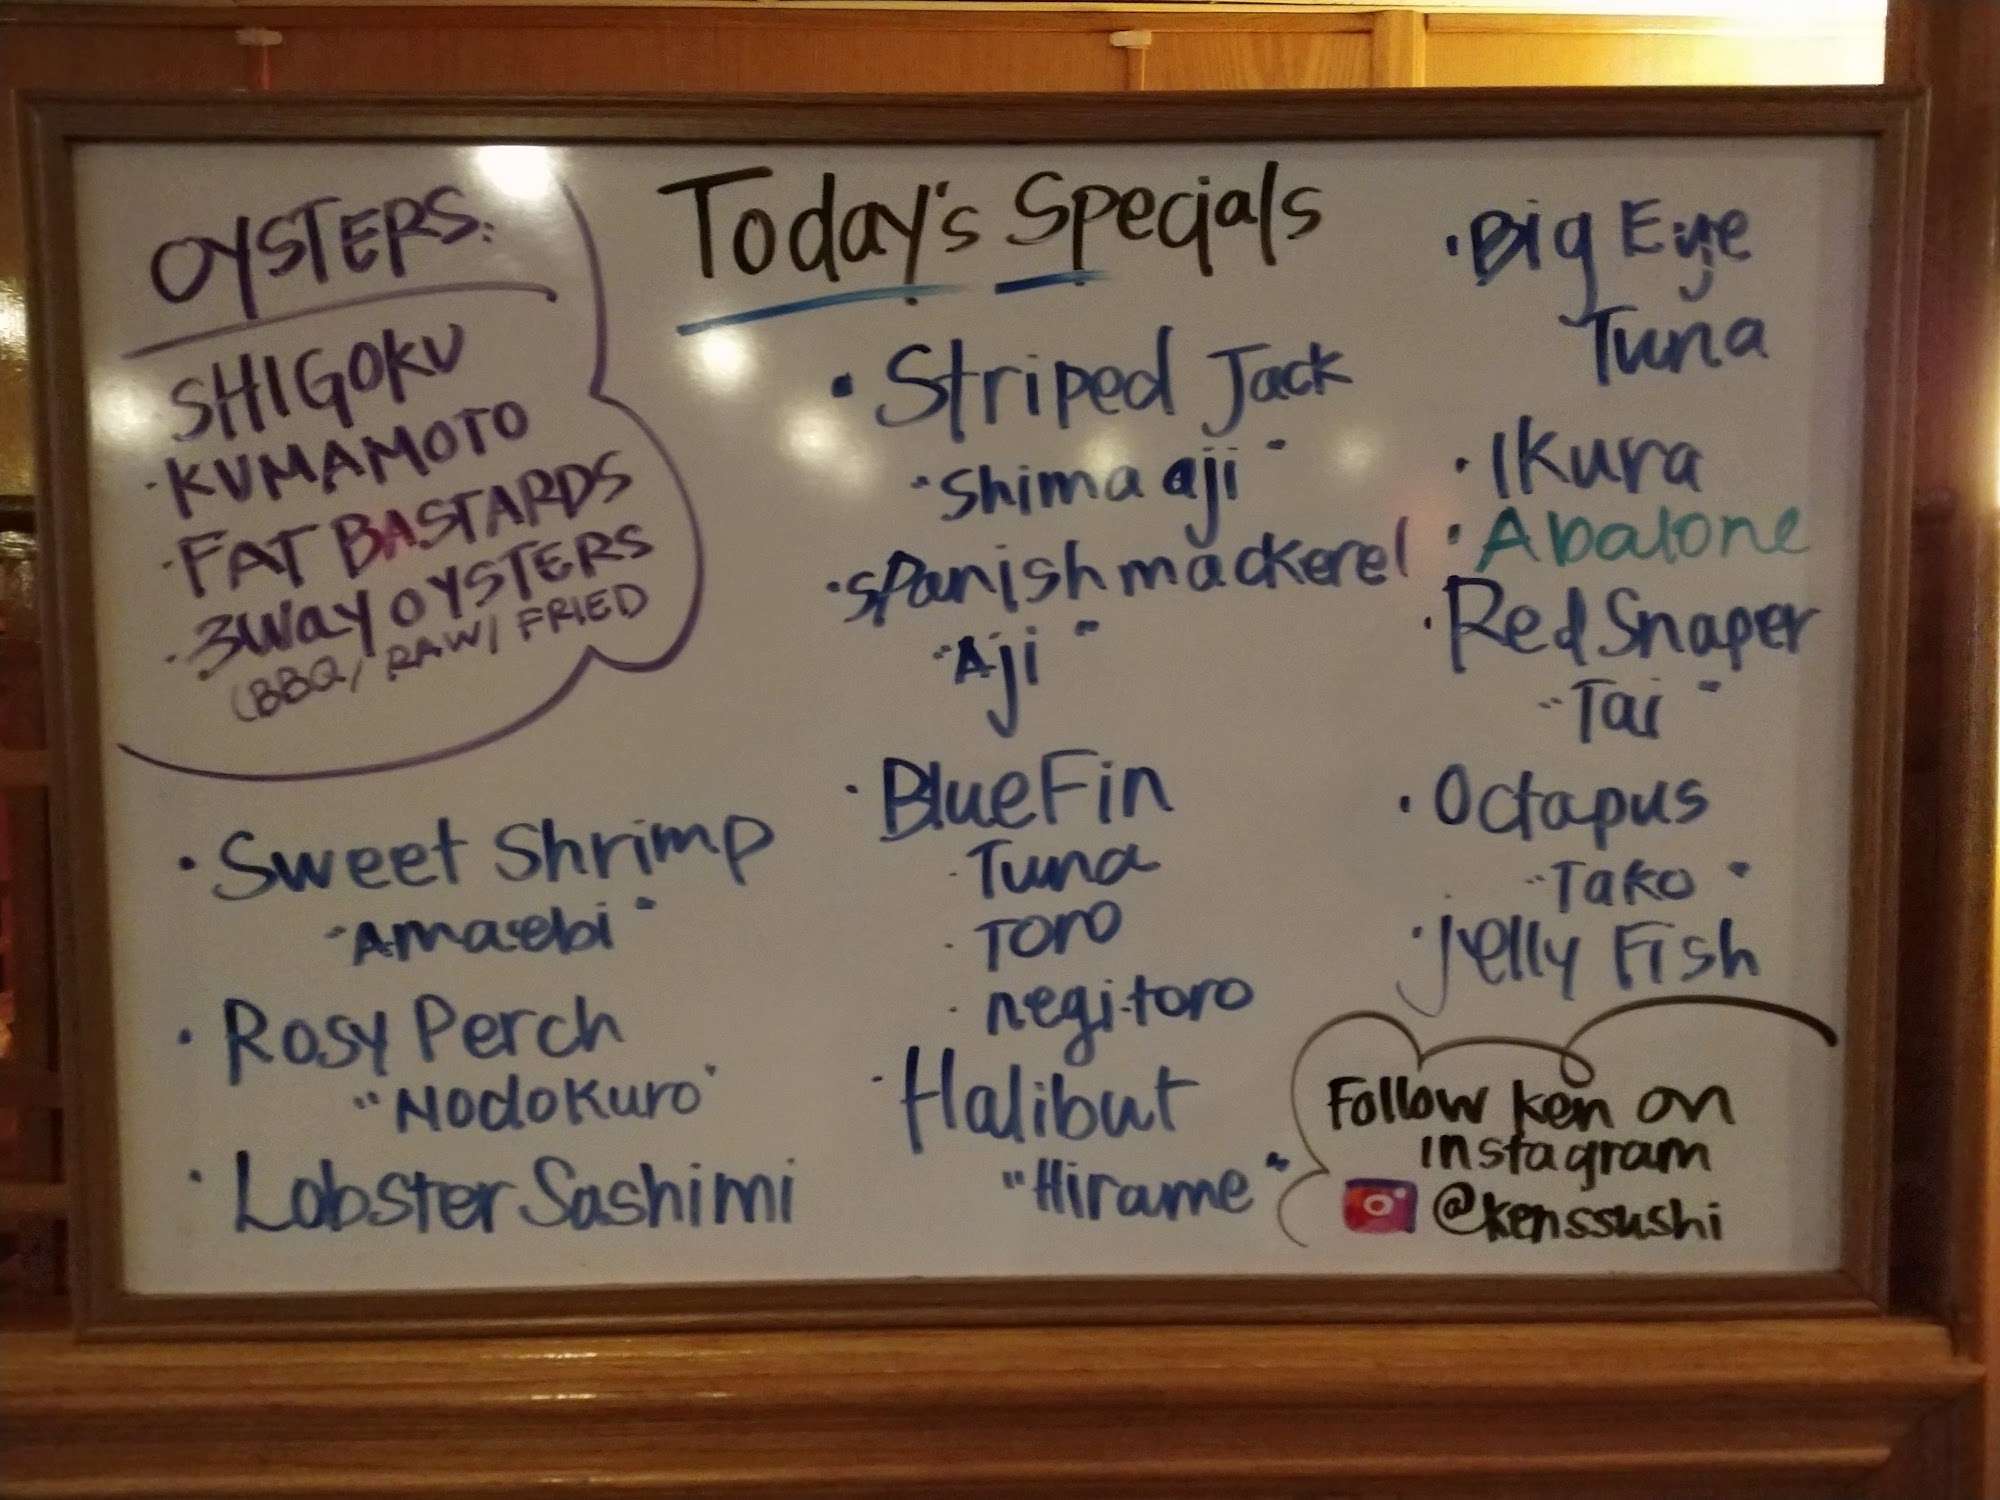 OYSTERS:
SHIGOKU
· KUMAMOTO
· FAT BASTARDS
· 3Way OYSTERS
(BBQ/ RAW/ FRIED
· Sweet Shrimp
"Amaebi"
· Rosy Perch
"Nodokuro"
· Lobster Sashimi
Today's Specials
· Striped Jack
"Shima aji"
· Spanish mackerel
"Aji"
· BlueFin
· Tuna
· TORO
· negitoro
· Halibut
"Hirame"
· Big Eye
Tuna
· Ikura
· Abalone
· Red Snaper
"Tai"
· Octapus
"Tako"
· jelly Fish
Follow ken on
instagram
@kenssushi